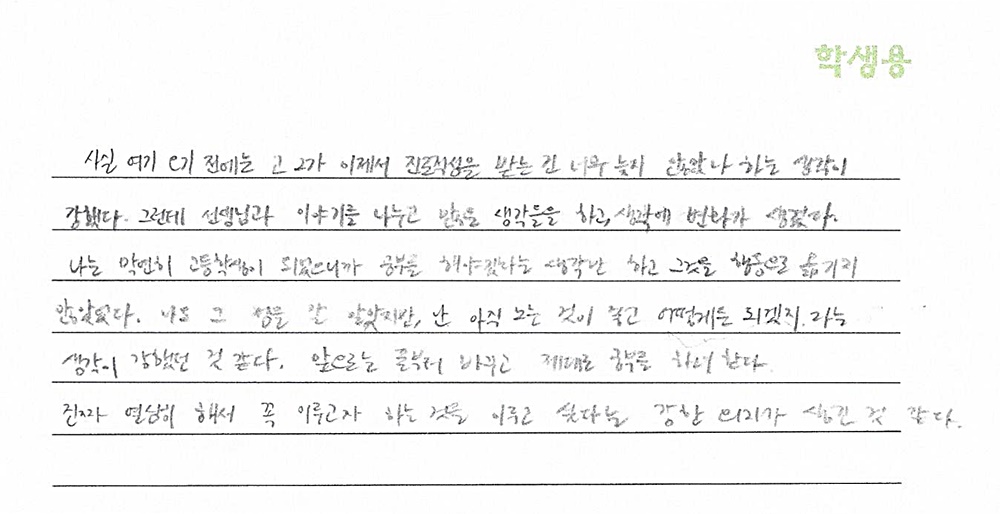 학생용
사실 여기 오기 전에는 고2가 이제서 진로적성을 받는 건 너무 늦지 않았나 하는 생각이
강했다. 그런데 선생님과 이야기를 나누고 많은 생각들을 하고, 생각에 변화가 생겼다.
나는 막연히 고등학생이 되었으니까 공부를 해야겠다는 생각만 하고 그것을 행동으로 옮기지
않았었다. 나도 그 점을 잘 알았지만, 난 아직 노는 것이 좋고 어떻게든 되겠지. 라는
생각이 강했던 것 같다. 앞으로는 꿈부터 바꾸고 제대로 공부를 하려 한다.
진짜 열심히 해서 꼭 이루고자 하는 것을 이루고 싶다는 강한 의지가 생긴 것 같다.